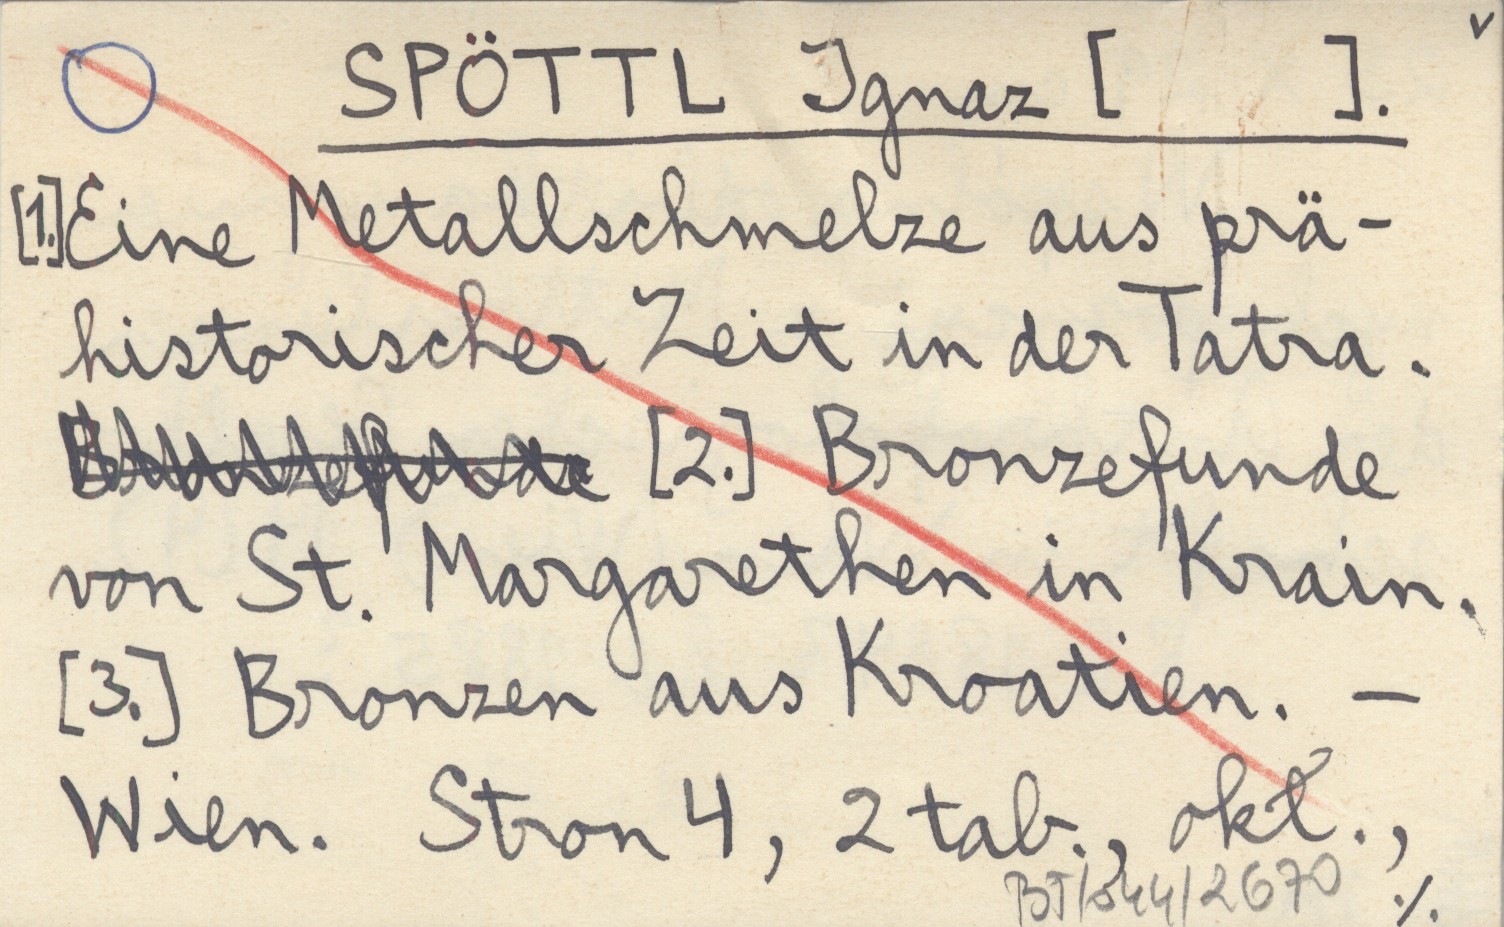 v
SPÖTTL Ignaz [ ].
[1.] Eine Metallschmelze aus prä-
historischer Zeit in der Tatra.
Bronzefunde [2.] Bronzefunde
von St. Margarethen in Krain.
[3.] Bronzen aus Kroatien. —
Wien. Stron 4, 2 tab., okł.,
BT/344/2670 ./.